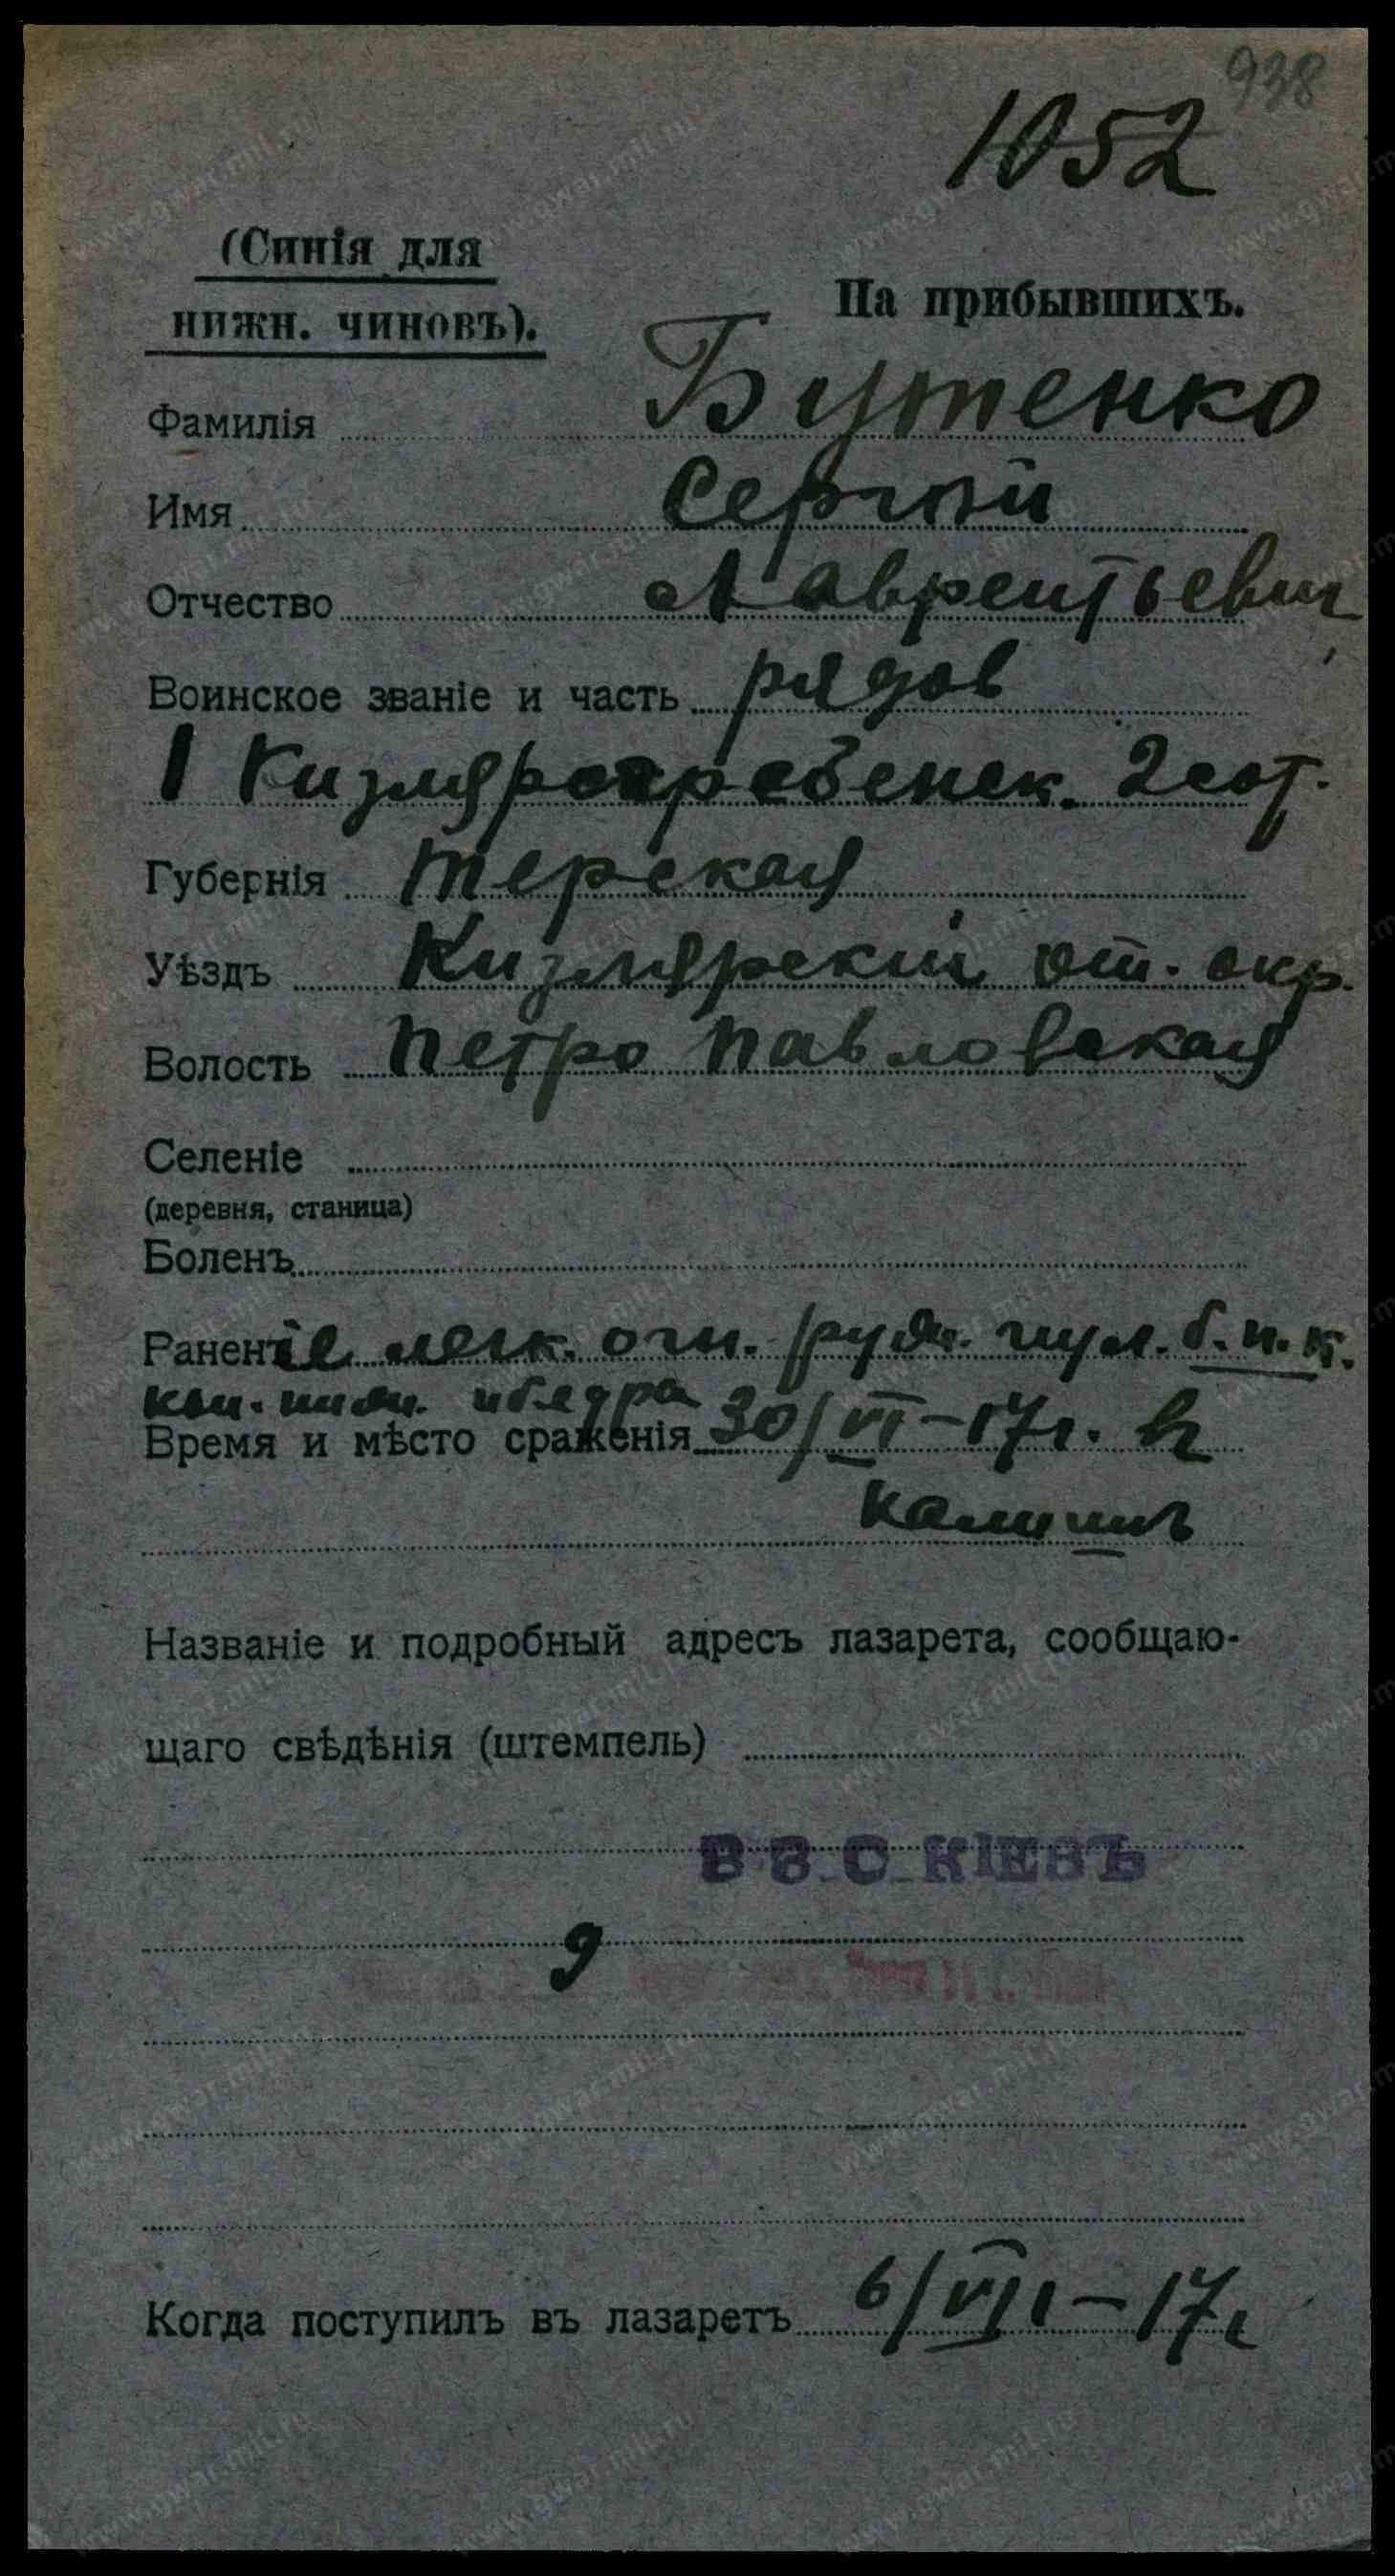 938
1052
(Синія для
нижн. чиновъ).
На прибывшихъ.
Фамилія Бутенко
Имя Сергѣй
Отчество Лаврентьевич
Воинское званіе и часть рядов
1 Кизлярогребенск. 2 сот.
Губернія Терская
Уѣздъ Кизлярский от. окр.
Волость Петро Павловская
Селеніе
(деревня, станица)
Боленъ
Раненіе легк. огн. руж. пул. б. п. к.
Время и мѣсто сраженія 30/VI-17г. в
Названіе и подробный адресъ лазарета, сообщаю-
щаго свѣдѣнія (штемпель)
В З С КІЕВЪ
9
Когда поступилъ въ лазаретъ 6/VII-17г